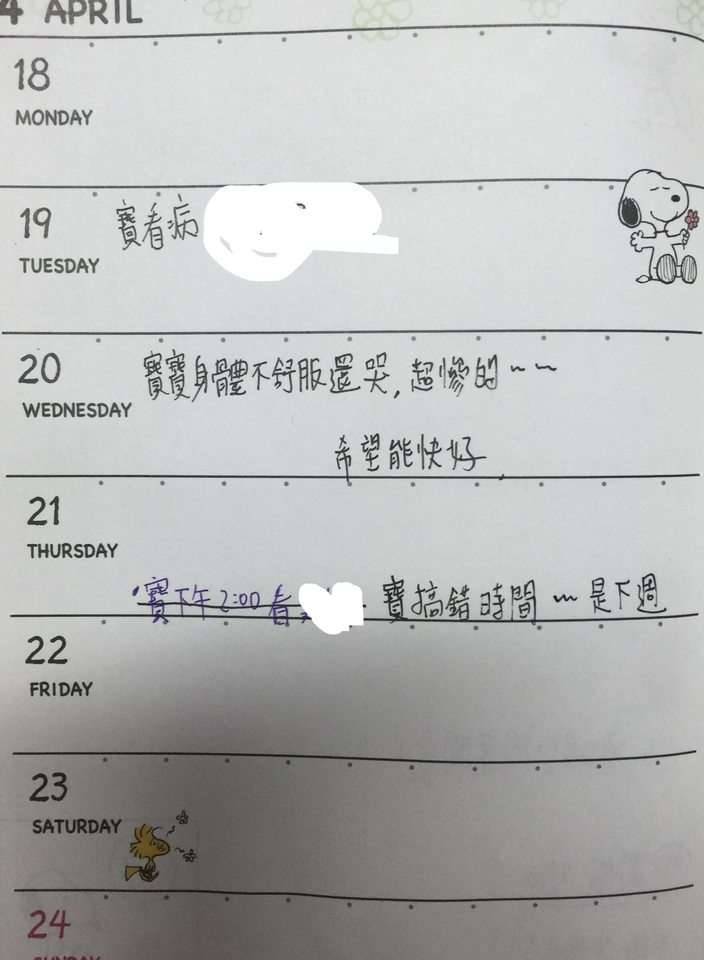 4 APRIL
18
MONDAY
19 寶看病
TUESDAY
20 寶寶身體不舒服還哭,超慘的~~
WEDNESDAY
希望能快好
21
THURSDAY
寶下午2:00看 寶搞錯時間~是下週
22
FRIDAY
23
SATURDAY
24
SUNDAY